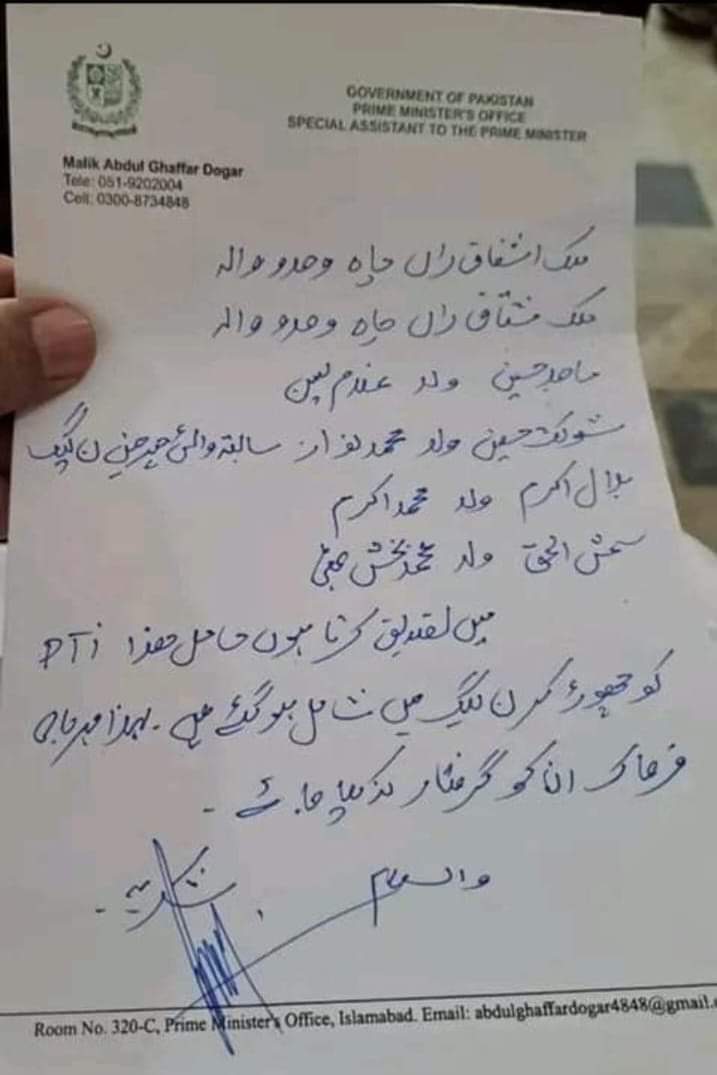 GOVERNMENT OF PAKISTAN
PRIME MINISTER'S OFFICE
SPECIAL ASSISTANT TO THE PRIME MINISTER
Malik Abdul Ghaffar Dogar
Tele: 051-9202004
Cell: 0300-8734848
ملک اشفاق راں چاہ وحدو والہ
ملک مشتاق راں چاہ وحدو والہ
ماجد حسین ولد غلام یسین
شوکت حسین ولد محمد نواز سابقہ وائس چیرمین ن لیگ
بلال اکرم ولد محمد اکرم
شمش الحق ولد محمد بخش
میں تصدیق کرتا ہوں حامل ھذا PTi
کو چھوڑ کر ن لیگ میں شامل ہو گئے ہیں۔ لہذا مہربانی
فرما کر ان کو گرفتار نہ کیا جائے۔
والسلام
شکریہ۔
Room No. 320-C, Prime Minister's Office, Islamabad. Email: abdulghaffardogar4848@gmail.